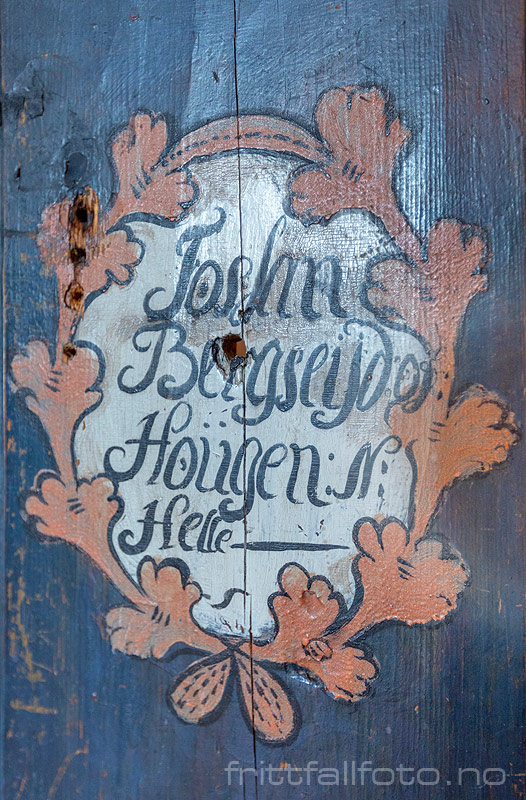 Joshn
Bergseijdo
Hoügen: N:
Helle
frittfallfoto.no